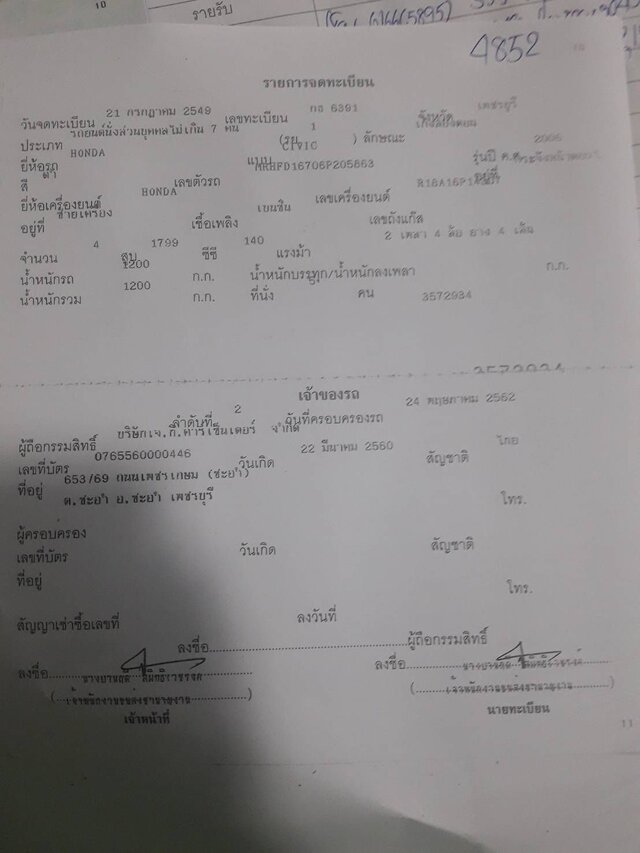 10
รายรับ
4852
10
รายการจดทะเบียน
วันจดทะเบียน 21 กรกฎาคม 2549 เลขทะเบียน กธ 6391 จังหวัด เพชรบุรี
ประเภท รถยนต์นั่งส่วนบุคคลไม่เกิน 7 คน (รย. 1 ) ลักษณะ
ยี่ห้อรถ HONDA แบบ CIVIC รุ่นปี ค.ศ. 2006
สี ดำ เลขตัวรถ MRHFD16706P205863 อยู่ที่
ยี่ห้อเครื่องยนต์ HONDA เลขเครื่องยนต์
อยู่ที่ ซ้ายเครื่อง เชื้อเพลิง เบนซิน เลขถังแก๊ส
จำนวน 4 สูบ 1799 ซีซี 140 แรงม้า 2 เพลา 4 ล้อ ยาง 4 เส้น
น้ำหนักรถ 1200 ก.ก. น้ำหนักบรรทุก/น้ำหนักลงเพลา ก.ก.
น้ำหนักรวม 1200 ก.ก. ที่นั่ง คน 3572934
เจ้าของรถ
ลำดับที่ 2 วันที่ครอบครองรถ 24 พฤษภาคม 2562
ผู้ถือกรรมสิทธิ์ บริษัทเจ.ที.คาร์เซ็นเตอร์ จำกัด
เลขที่บัตร 0765560000446 วันเกิด 22 มีนาคม 2560 สัญชาติ ไทย
ที่อยู่ 653/69 ถนนเพชรเกษม (ชะอำ)
ต.ชะอำ อ.ชะอำ เพชรบุรี โทร.
ผู้ครอบครอง
เลขที่บัตร วันเกิด สัญชาติ
ที่อยู่ โทร.
สัญญาเช่าซื้อเลขที่ ลงวันที่
ลงชื่อ ผู้ถือกรรมสิทธิ์
ลงชื่อ ลงชื่อ
(เจ้าพนักงานขนส่งชำนาญงาน) (เจ้าพนักงานขนส่งชำนาญงาน)
เจ้าหน้าที่ นายทะเบียน
11